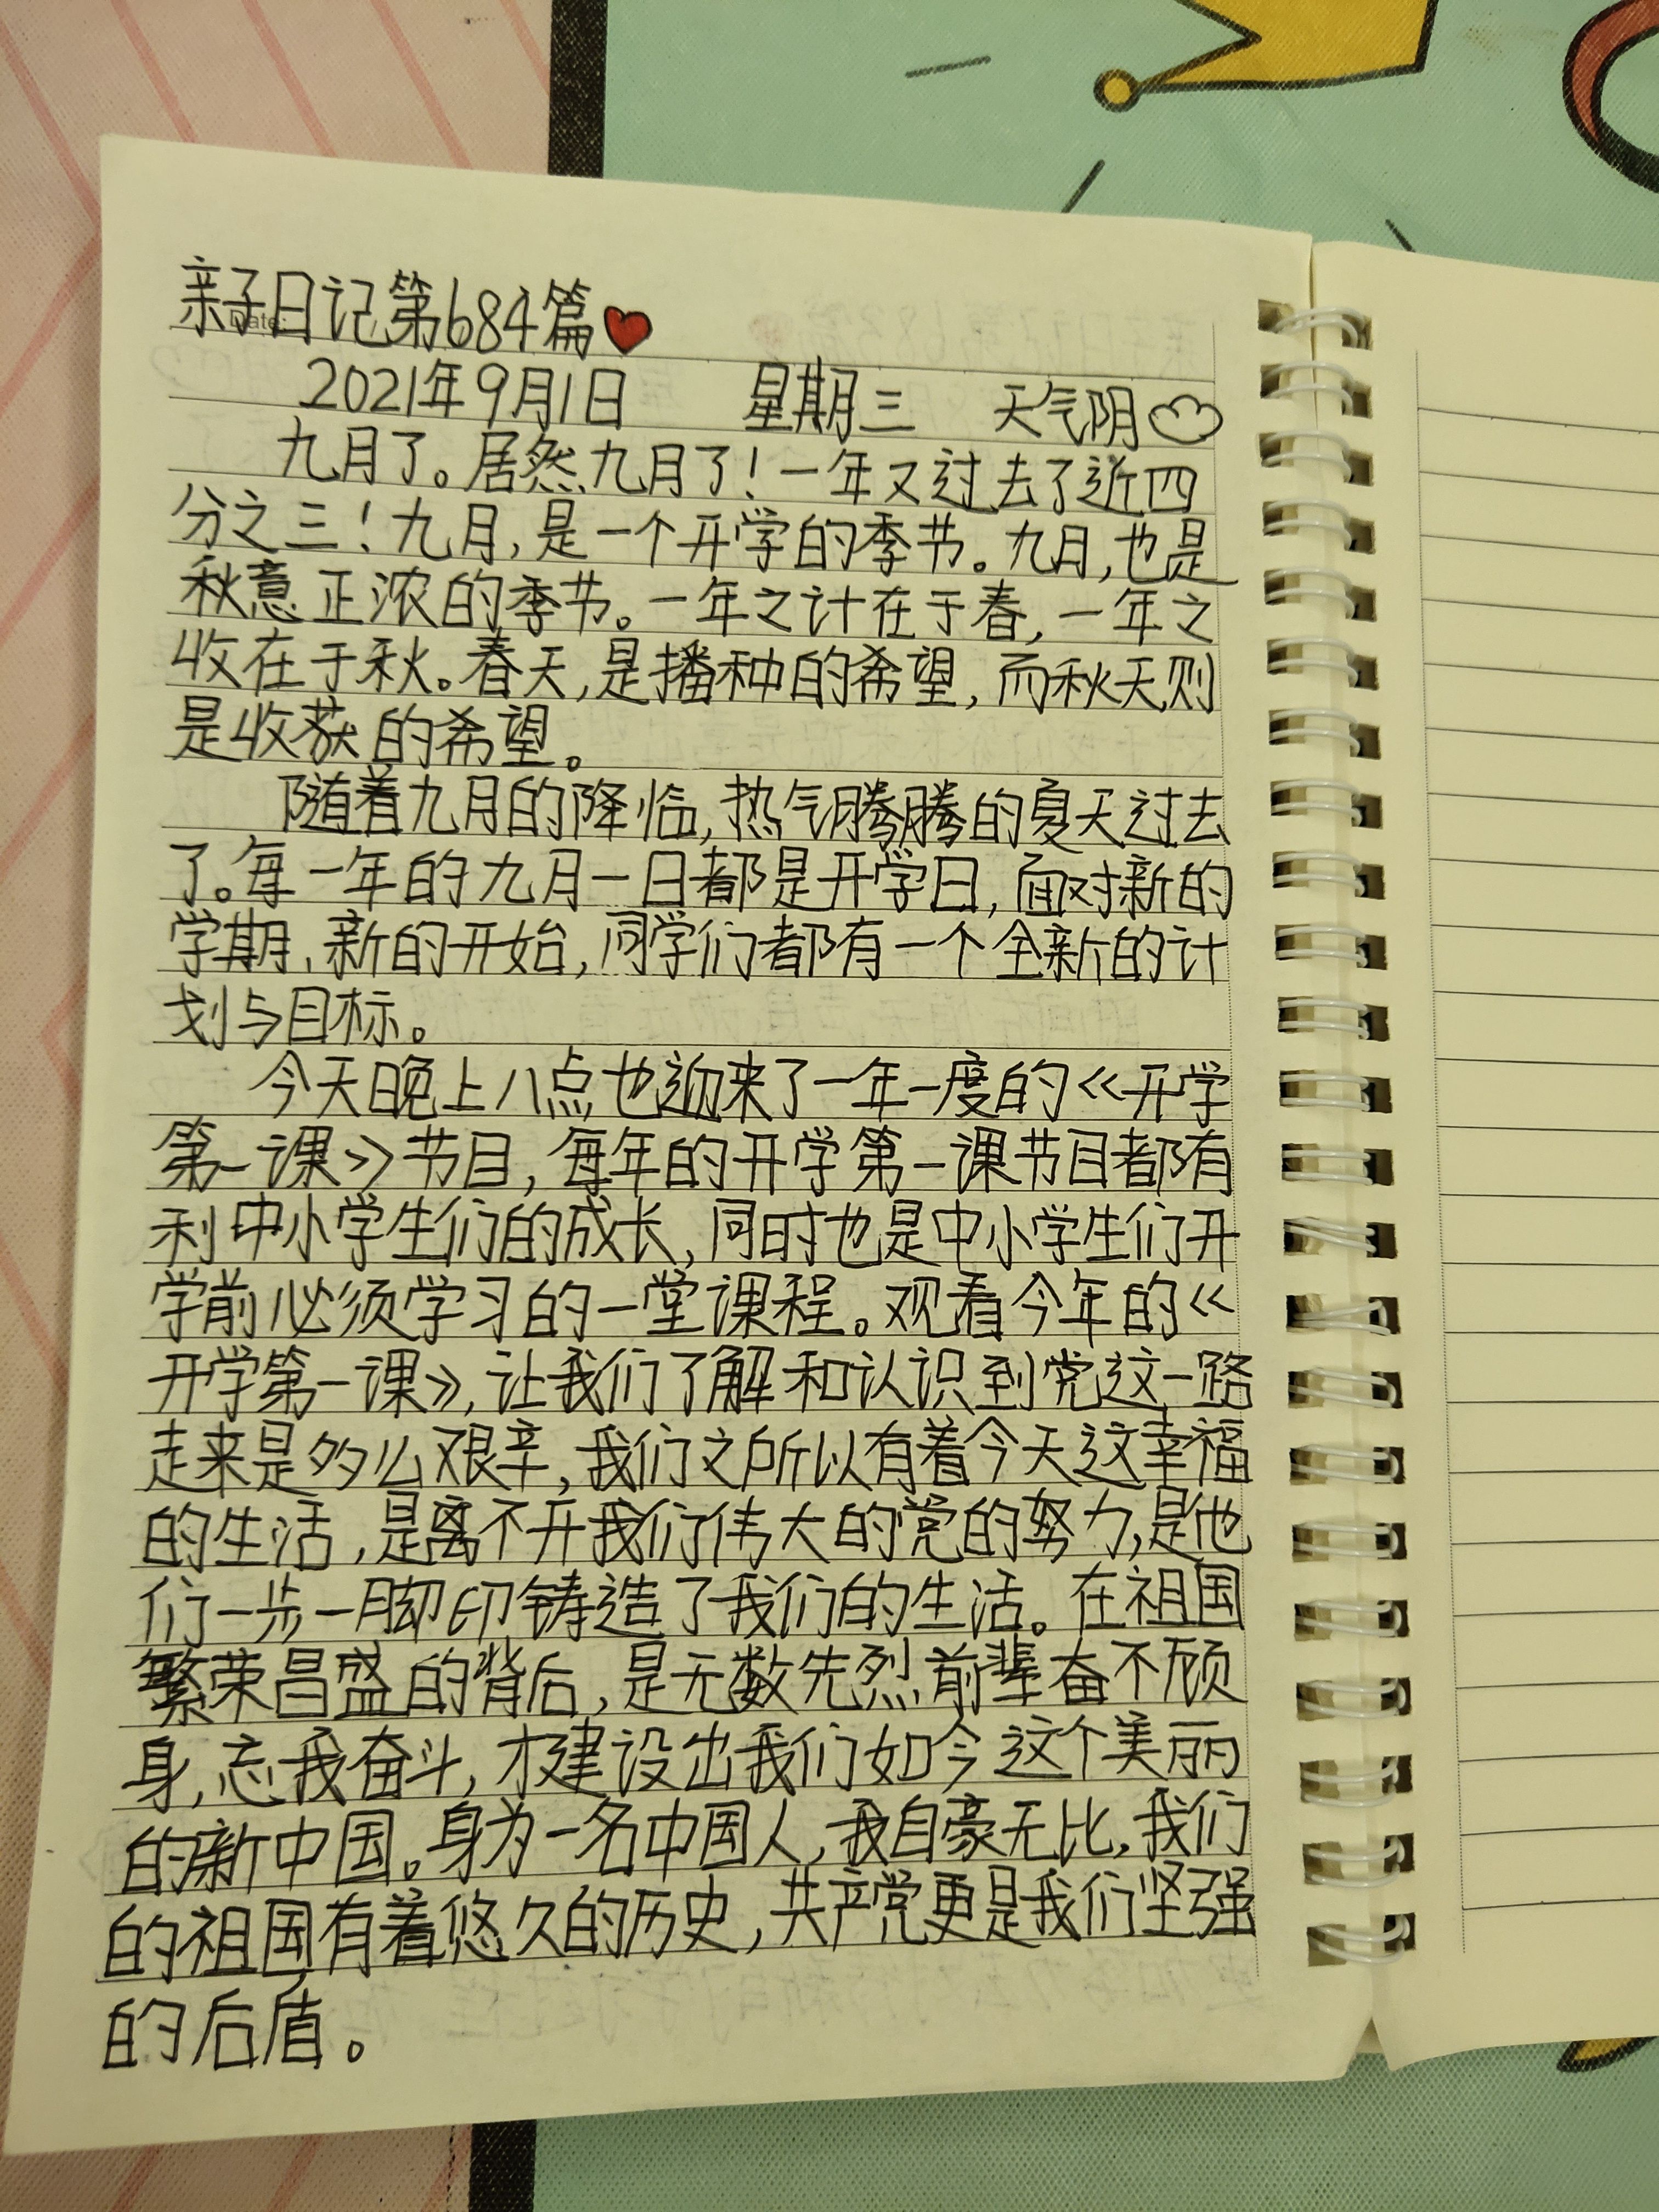 亲子日记第684篇
Date:
2021年9月1日 星期三 天气阴
九月了。居然九月了！一年又过去了近四
分之三！九月，是一个开学的季节。九月，也是
秋意正浓的季节。一年之计在于春，一年之
收在于秋。春天，是播种的希望，而秋天则
是收获的希望。
随着九月的降临，热气腾腾的夏天过去
了。每一年的九月一日都是开学日，面对新的
学期、新的开始，同学们都有一个全新的计
划与目标。
今天晚上八点也迎来了一年一度的《开学
第一课》节目，每年的开学第一课节目都有
利中小学生们的成长，同时也是中小学生们开
学前必须学习的一堂课程。观看今年的《
开学第一课》，让我们了解和认识到党这一路
走来是多么艰辛，我们之所以有着今天这幸福
的生活，是离不开我们伟大的党的努力，是他
们一步一脚印铸造了我们的生活。在祖国
繁荣昌盛的背后，是无数先烈前辈奋不顾
身，忘我奋斗，才建设出我们如今这个美丽
的新中国。身为一名中国人，我自豪无比，我们
的祖国有着悠久的历史，共产党更是我们坚强
的后盾。